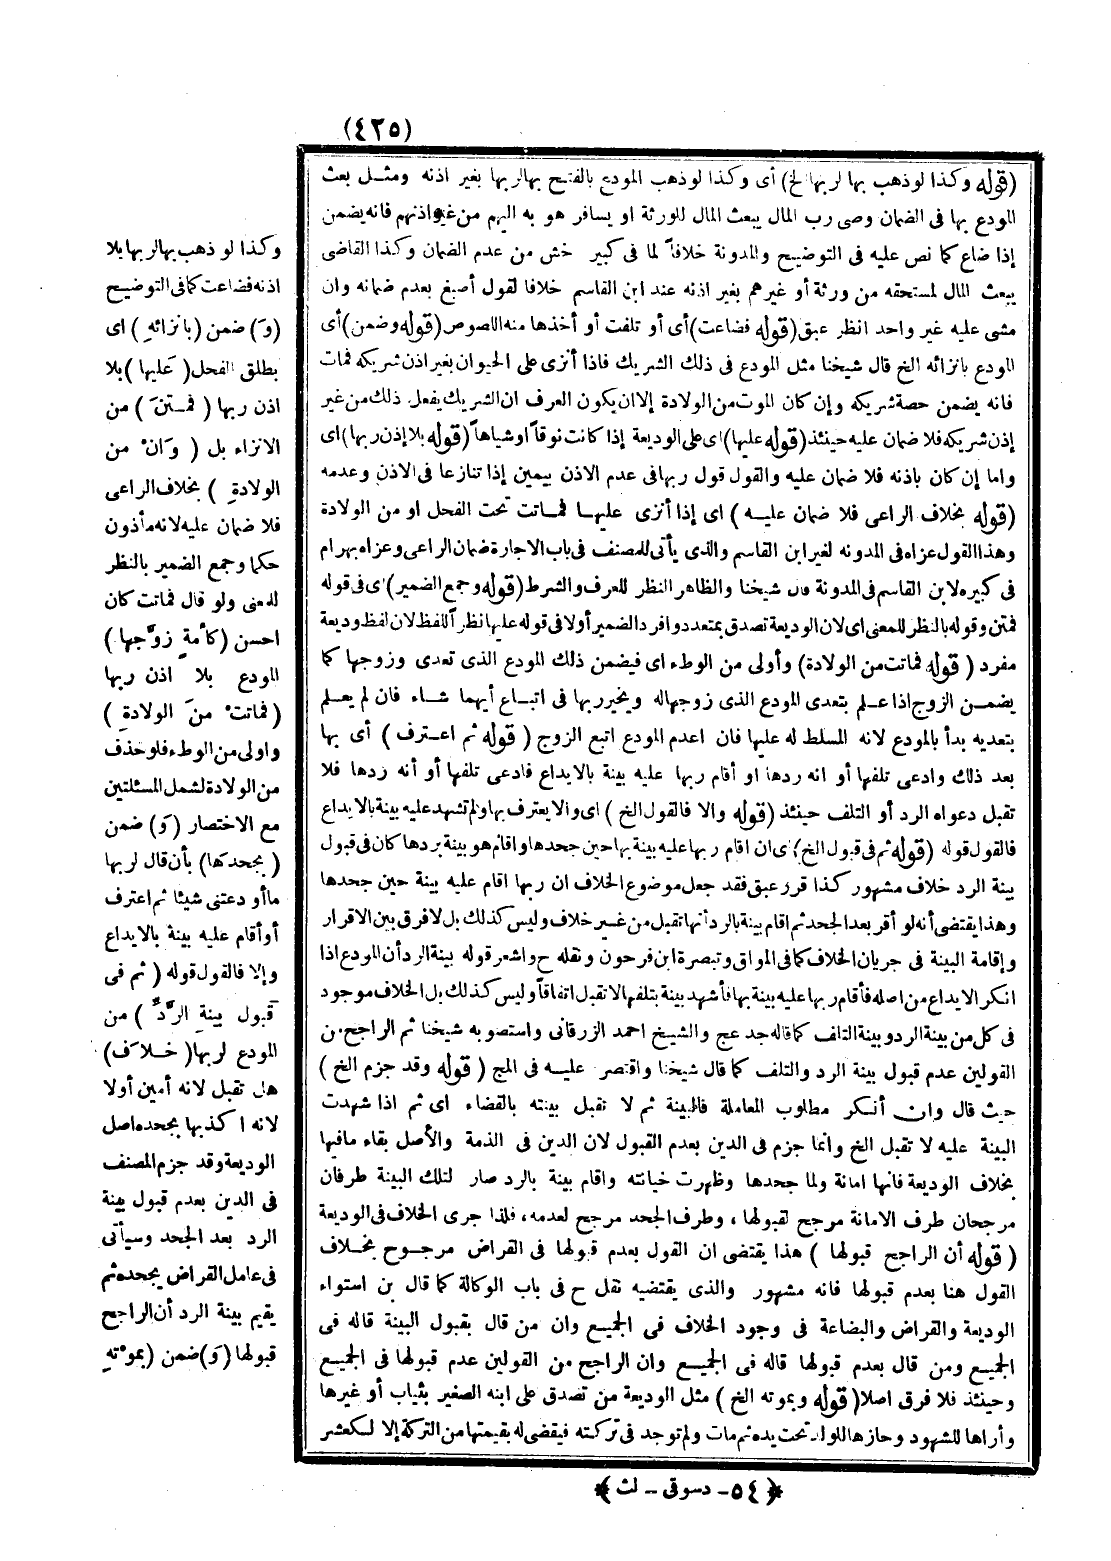 (٤٢٥)
(قوله وكذا لو ذهب بها لربها الخ) أى وكذا لو ذهب المودع بالفتح بها لربها بغير اذنه ومثل بعث
المودع بها فى الضمان وصى رب المال يبعث المال للورثة او يسافر هو به اليهم من غير اذنهم فانه يضمن
إذا ضاع كما نص عليه فى التوضيح والمدونة خلافاً لما فى كبير خش من عدم الضمان وكذا القاضى
يبعث المال لمستحقه من ورثة أو غيرهم بغير اذنه عند ابن القاسم خلافا لقول أصبغ بعدم ضمانه وان
مشى عليه غير واحد انظر عبق (قوله فضاعت) أى أو تلفت أو أخذها منه اللصوص (قوله وضمن) أى
المودع بانزائه الخ قال شيخنا مثل المودع فى ذلك الشريك فاذا أنزى على الحيوان بغير اذن شريكه فمات
فانه يضمن حصة شريكه وإن كان الموت من الولادة إلا ان يكون العرف ان الشريك يفعل ذلك من غير
إذن شريكه فلا ضمان عليه حينئذ (قوله عليها) اى على الوديعة إذا كانت نوقاً او شياهاً (قوله بلا إذن ربها) اى
واما إن كان باذنه فلا ضمان عليه والقول قول ربها فى عدم الاذن بيمين إذا تنازعا فى الاذن وعدمه
(قوله بخلاف الراعى فلا ضمان عليه) اى إذا أنزى عليها فماتت تحت الفحل او من الولادة
وهذا القول عزاه فى المدونه لغير ابن القاسم والذى يأتى للمصنف فى باب الاجارة ضمان الراعى وعزاه بهرام
فى كبيره لابن القاسم فى المدونة قال شيخنا والظاهر النظر للعرف والشرط (قوله وجمع الضمير) اى فى قوله
فمتن وقوله بالنظر للمعنى اى لان الوديعة تصدق بمتعدد وافرد الضمير أولا فى قوله عليها نظراً للفظ لان لفظ وديعة
مفرد (قوله فماتت من الولادة) وأولى من الوطء اى فيضمن ذلك المودع الذى تعدى وزوجها كما
يضمن الزوج اذا علم بتعدى المودع الذى زوجها له ويخير ربها فى اتباع أيهما شاء فان لم يعلم
بتعديه بدأ بالمودع لانه المسلط له عليها فان اعدم المودع اتبع الزوج (قوله ثم اعترف) أى بها
بعد ذلك وادعى تلفها أو انه ردها او أقام ربها عليه بينة بالايداع فادعى تلفها أو أنه ردها فلا
تقبل دعواه الرد أو التلف حينئذ (قوله والا فالقول الخ) اى والا يعترف بها ولم تشهد عليه بينة بالايداع
فالقول قوله (قوله ثم فى قبول الخ) اى ان اقام ربها عليه بينة بها حين جحدها واقام هو بينة بردها كان فى قبول
بينة الرد خلاف مشهور كذا قرر عبق فقد جعل موضوع الخلاف ان ربها اقام عليه بينة حين جحدها
وهذا يقتضى أنه لو أقر بعد الجحد ثم اقام بينة بالرد أنها تقبل من غير خلاف وليس كذلك بل لا فرق بين الاقرار
وإقامة البينة فى جريان الخلاف كما فى المواق وتبصرة ابن فرحون ونقله ح واشعر قوله بينة الرد أن المودع اذا
انكر الايداع من اصله فأقام ربها عليه بينة بها فأشهد بينة بتلفها لا تقبل اتفاقاً وليس كذلك بل الخلاف موجود
فى كل من بينة الرد وبينة التلف كما قاله جد عج والشيخ احمد الزرقانى واستصوبه شيخنا ثم الراجح من
القولين عدم قبول بينة الرد والتلف كما قال شيخنا واقتصر عليه فى المج (قوله وقد جزم الخ)
حيث قال وان أنكر مطلوب المعاملة فالبينة ثم لا تقبل بينته بالقضاء اى ثم اذا شهدت
البينة عليه لا تقبل الخ وانما جزم فى الدين بعدم القبول لان الدين فى الذمة والأصل بقاء ما فيها
بخلاف الوديعة فانها امانة ولما جحدها وظهرت خيانته واقام بينة بالرد صار لتلك البينة طرفان
مرجحان طرف الامانة مرجح لقبولها، وطرف الجحد مرجح لعدمه، فلذا جرى الخلاف فى الوديعة
(قوله أن الراجح قبولها) هذا يقتضى ان القول بعدم قبولها فى القراض مرجوح بخلاف
القول هنا بعدم قبولها فانه مشهور والذى يقتضيه نقل ح فى باب الوكالة كما قال بن استواء
الوديعة والقراض والبضاعة فى وجود الخلاف فى الجميع وان من قال بقبول البينة قاله فى
الجميع ومن قال بعدم قبولها قاله فى الجميع وان الراجح من القولين عدم قبولها فى الجميع
وحينئذ فلا فرق اصلا (قوله وبموته الخ) مثل الوديعة من تصدق على ابنه الصغير بثياب أو غيرها
وأراها للشهود وحازها للولد تحت يده ثم مات ولم توجد فى تركته فيقضى له بقيمتها من التركة إلا لكعشر
وكذا لو ذهب بها لربها بلا
اذنه فضاعت كما فى التوضيح
(وَ) ضمن (بانزائهِ) اى
بطلق الفحل (عَليها) بلا
اذن ربها (فمتنَ) من
الانزاء بل (وَانْ من
الولادةِ) بخلاف الراعى
فلا ضمان عليه لانه مأذون
حكما وجمع الضمير بالنظر
للمعنى ولو قال فماتت كان
احسن (كأمةٍ زوَّجها)
المودع بلا اذن ربها
(فماتتْ منَ الولادةِ)
واولى من الوطء فلو حذف
من الولادة لشمل المسئلتين
مع الاختصار (وَ) ضمن
(بجحدها) بأن قال لربها
ما أودعتنى شيئا ثم اعترف
أو أقام عليه بينة بالايداع
وإلا فالقول قوله (ثم فى
قبول بينةِ الرَّدِّ) من
المودع لربها (خلاَف)
هل تقبل لانه أمين أولا
لانه اكذبها بجحده اصل
الوديعة وقد جزم المصنف
فى الدين بعدم قبول بينة
الرد بعد الجحد وسيأتى
فى عامل القراض يجحده ثم
يقيم بينة الرد أن الراجح
قبولها (وَ) ضمن (بموْتهِ
﴿٥٤ - دسوقى - لث﴾